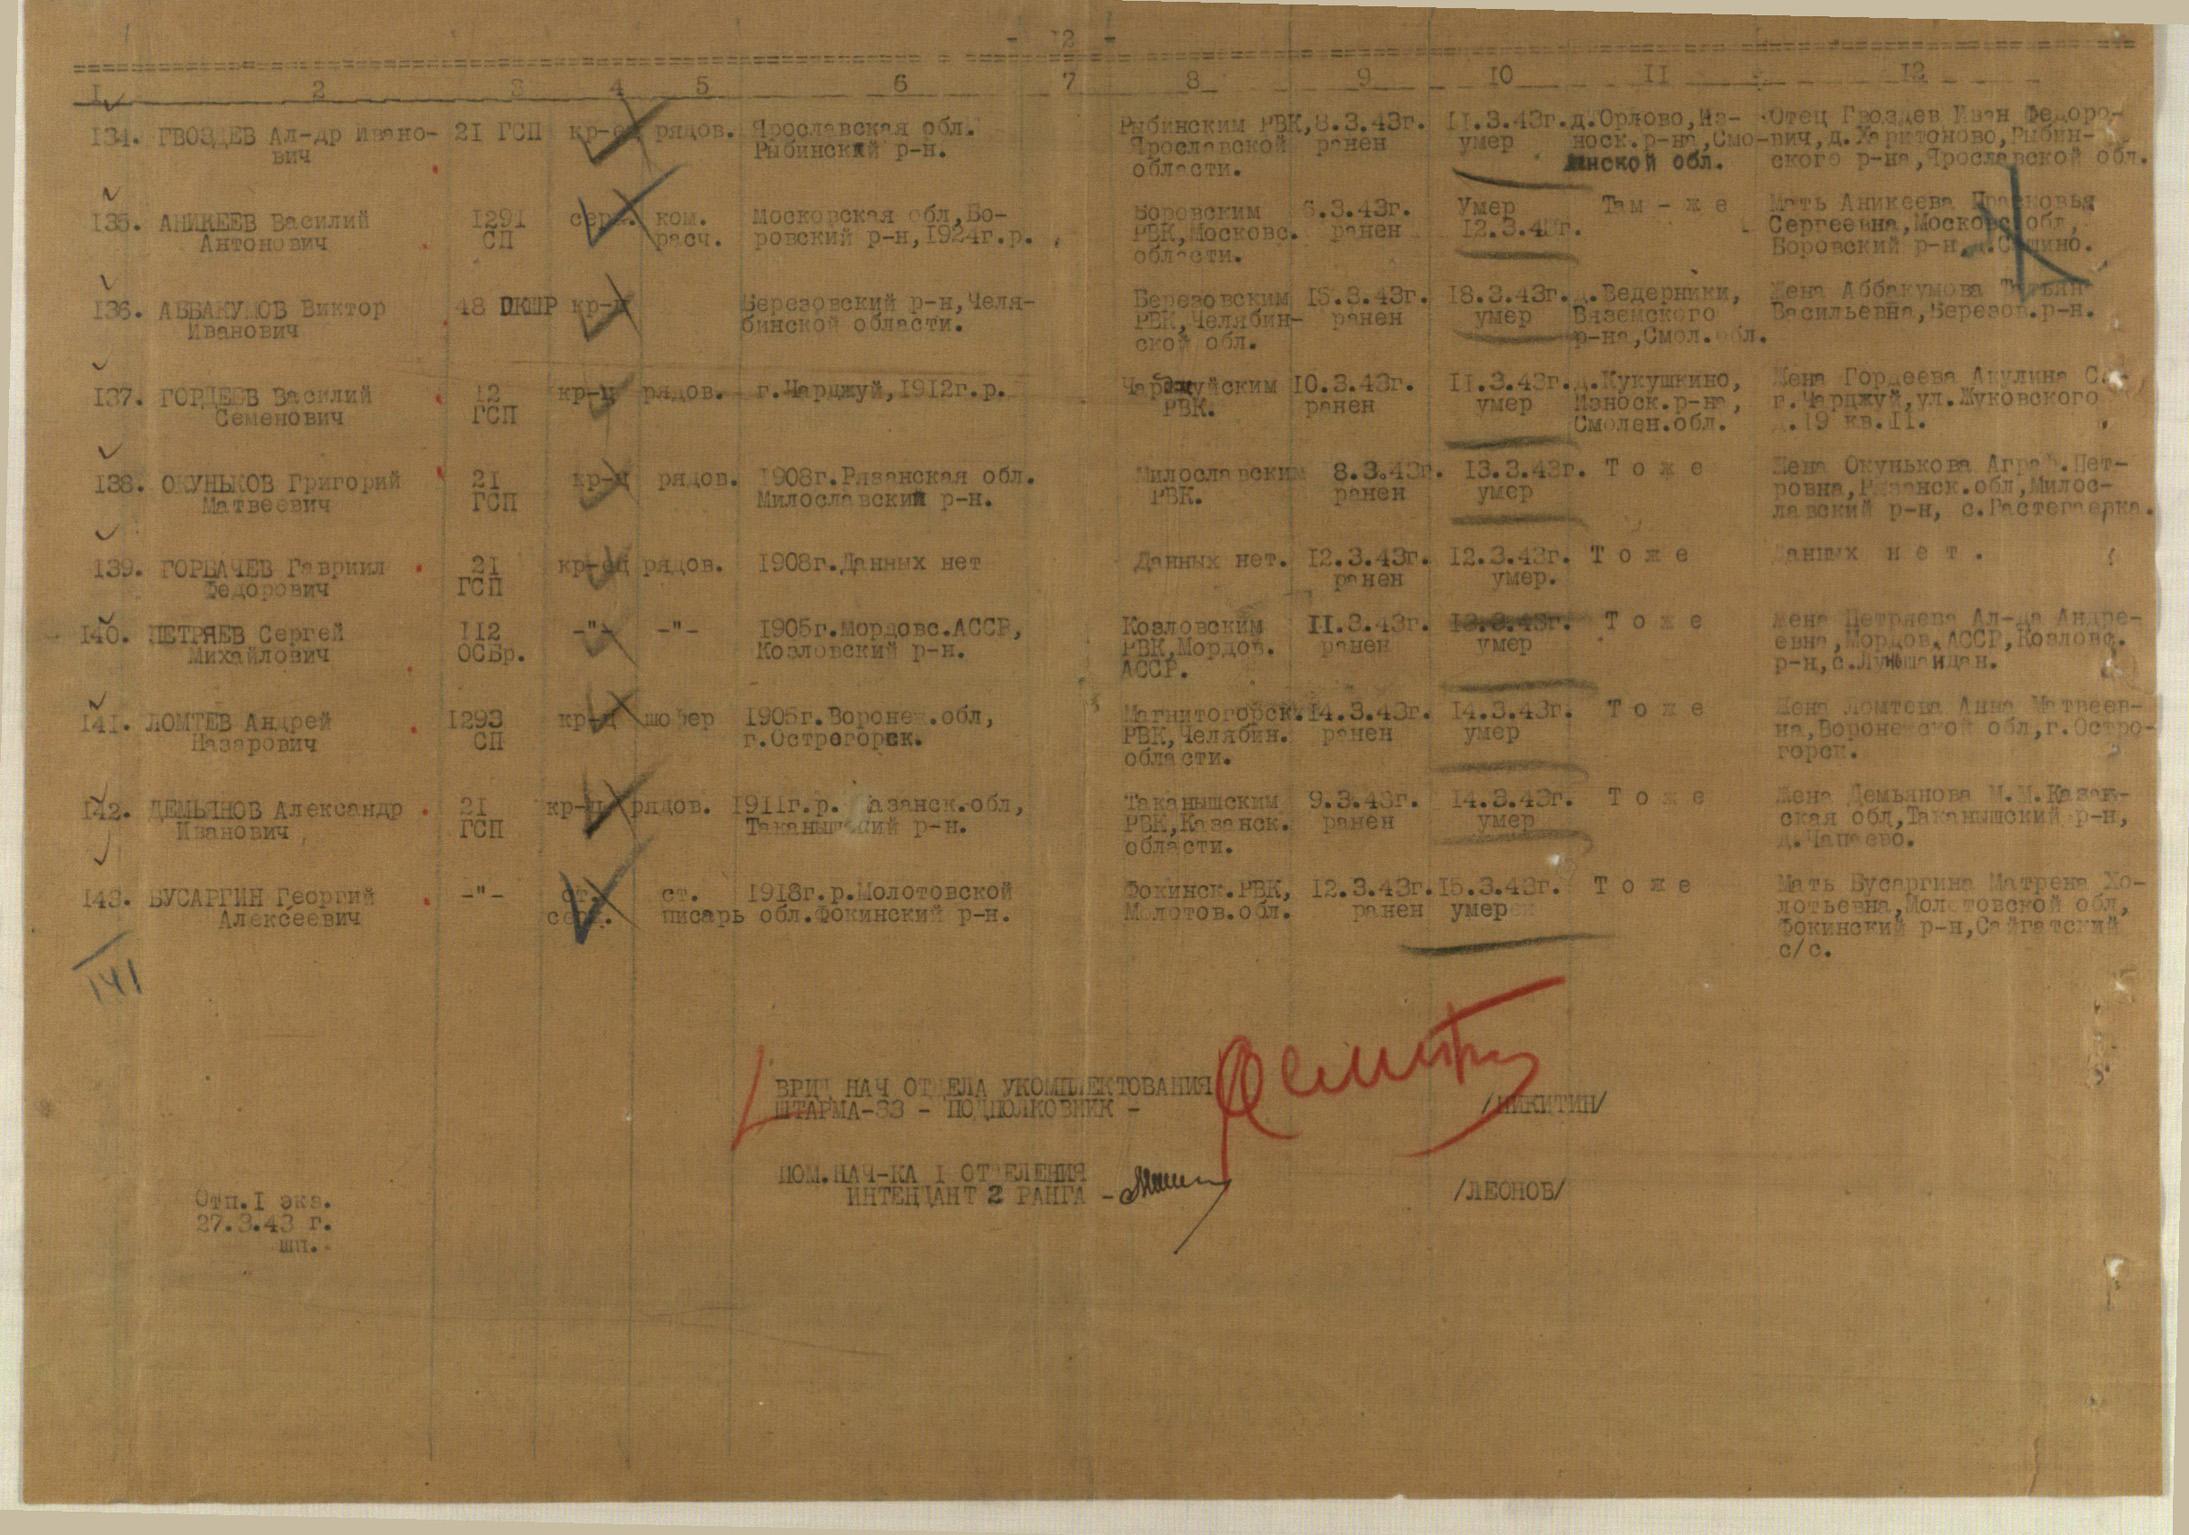 - 12 -
1 2 3 4 5 6 7 8 9 10 11 12
134. ГВОЗДЕВ Ал-др Ивано- 21 ГСП кр-ец рядов. Ярославская обл. Рыбинским РВК, 8.3.43г. 11.3.43г. д.Орлово, Из- Отец Гвоздев Иван Федоро-
вич Рыбинский р-н. Ярославской ранен умер носк.р-на, Смо- вич, д.Харитоново, Рыбин-
области. ленской обл. ского р-на, Ярославской обл.
135. АНИКЕЕВ Василий 1291 серж. ком. Московская обл, Бо- Боровским 6.3.43г. Умер Там - же Мать Аникеева Прасковья
Антонович СП расч. ровский р-н, 1924г.р. РВК, Московс. ранен 12.3.43г. Сергеевна, Московс. обл,
области. Боровский р-н,
136. АББАКУМОВ Виктор 48 ОКШР кр-ц Березовский р-н, Челя- Березовским 15.3.43г. 18.3.43г. д.Ведерники, Жена Аббакумова Татьян
Иванович бинской области. РВК, Челябин- ранен умер Вяземского Васильевна, Березов.р-н.
ской обл. р-на, Смол.обл.
137. ГОРДЕЕВ Василий 12 кр-ц рядов. г.Чарджуй, 1912г.р. Чарджуйским 10.3.43г. 11.3.43г. д.Кукушкино, Жена Гордеева Акулина С.
Семенович ГСП РВК. ранен умер Износк.р-на, г.Чарджуй, ул.Жуковского
Смолен.обл. д.19 кв.11.
138. ОКУНЬКОВ Григорий 21 кр-ц рядов. 1908г.Рязанская обл. Милославским 8.3.43г. 13.3.43г. Тоже Жена Окунькова Аграф.Пет-
Матвеевич ГСП Милославский р-н. РВК. ранен умер ровна, Рязанск.обл, Милос-
лавский р-н, с.Растегаевка.
139. ГОРБАЧЕВ Гавриил 21 кр-ец рядов. 1908г.Данных нет Данных нет. 12.3.43г. 12.3.43г. Тоже Данных нет.
Федорович ГСП ранен умер.
140. ПЕТРЯЕВ Сергей 112 -"- -"- 1905г.Мордовс.АССР, Козловским 11.3.43г. 13.3.43г. Тоже Жена Петряева Ал-да Андре-
Михайлович ОСБр. Козловский р-н. РВК, Мордов. ранен умер евна, Мордов.АССР, Козловс.
АССР. р-н, с.
141. ЛОМТЕВ Андрей 1293 кр-ц шофер 1905г.Воронеж.обл, Магнитогорск. 14.3.43г. 14.3.43г. Тоже Жена Ломтева Анна Матвеев-
Назарович СП г.Острогорск. РВК, Челябин. ранен умер на, Воронежской обл, г.Остро-
области. горск.
142. ДЕМЬЯНОВ Александр 21 кр-ц рядов. 1911г.р. Казанск.обл, Таканышским 9.3.43г. 14.3.43г. Тоже Жена Демьянова М.М.Казан-
Иванович ГСП Таканышский р-н. РВК, Казанск. ранен умер ская обл, Таканышский р-н,
области. д.Чапаево.
143. БУСАРГИН Георгий -"- ст. ст. 1918г.р.Молотовской Фокинск.РВК, 12.3.43г. 15.3.43г. Тоже Мать Бусаргина Матрена Хо-
Алексеевич серж. писарь обл.Фокинский р-н. Молотов.обл. ранен умер лотьевна, Молотовской обл,
Фокинский р-н, Сайгатский
с/с.
141
ВРИД НАЧ ОТДЕЛА УКОМПЛЕКТОВАНИЯ
ШТАРМА-33 - ПОДПОЛКОВНИК - /НИКИТИН/
ПОМ.НАЧ-КА 1 ОТДЕЛЕНИЯ
ИНТЕНДАНТ 2 РАНГА - /ЛЕОНОВ/
Отп.1 экз.
27.3.43 г.
шп.